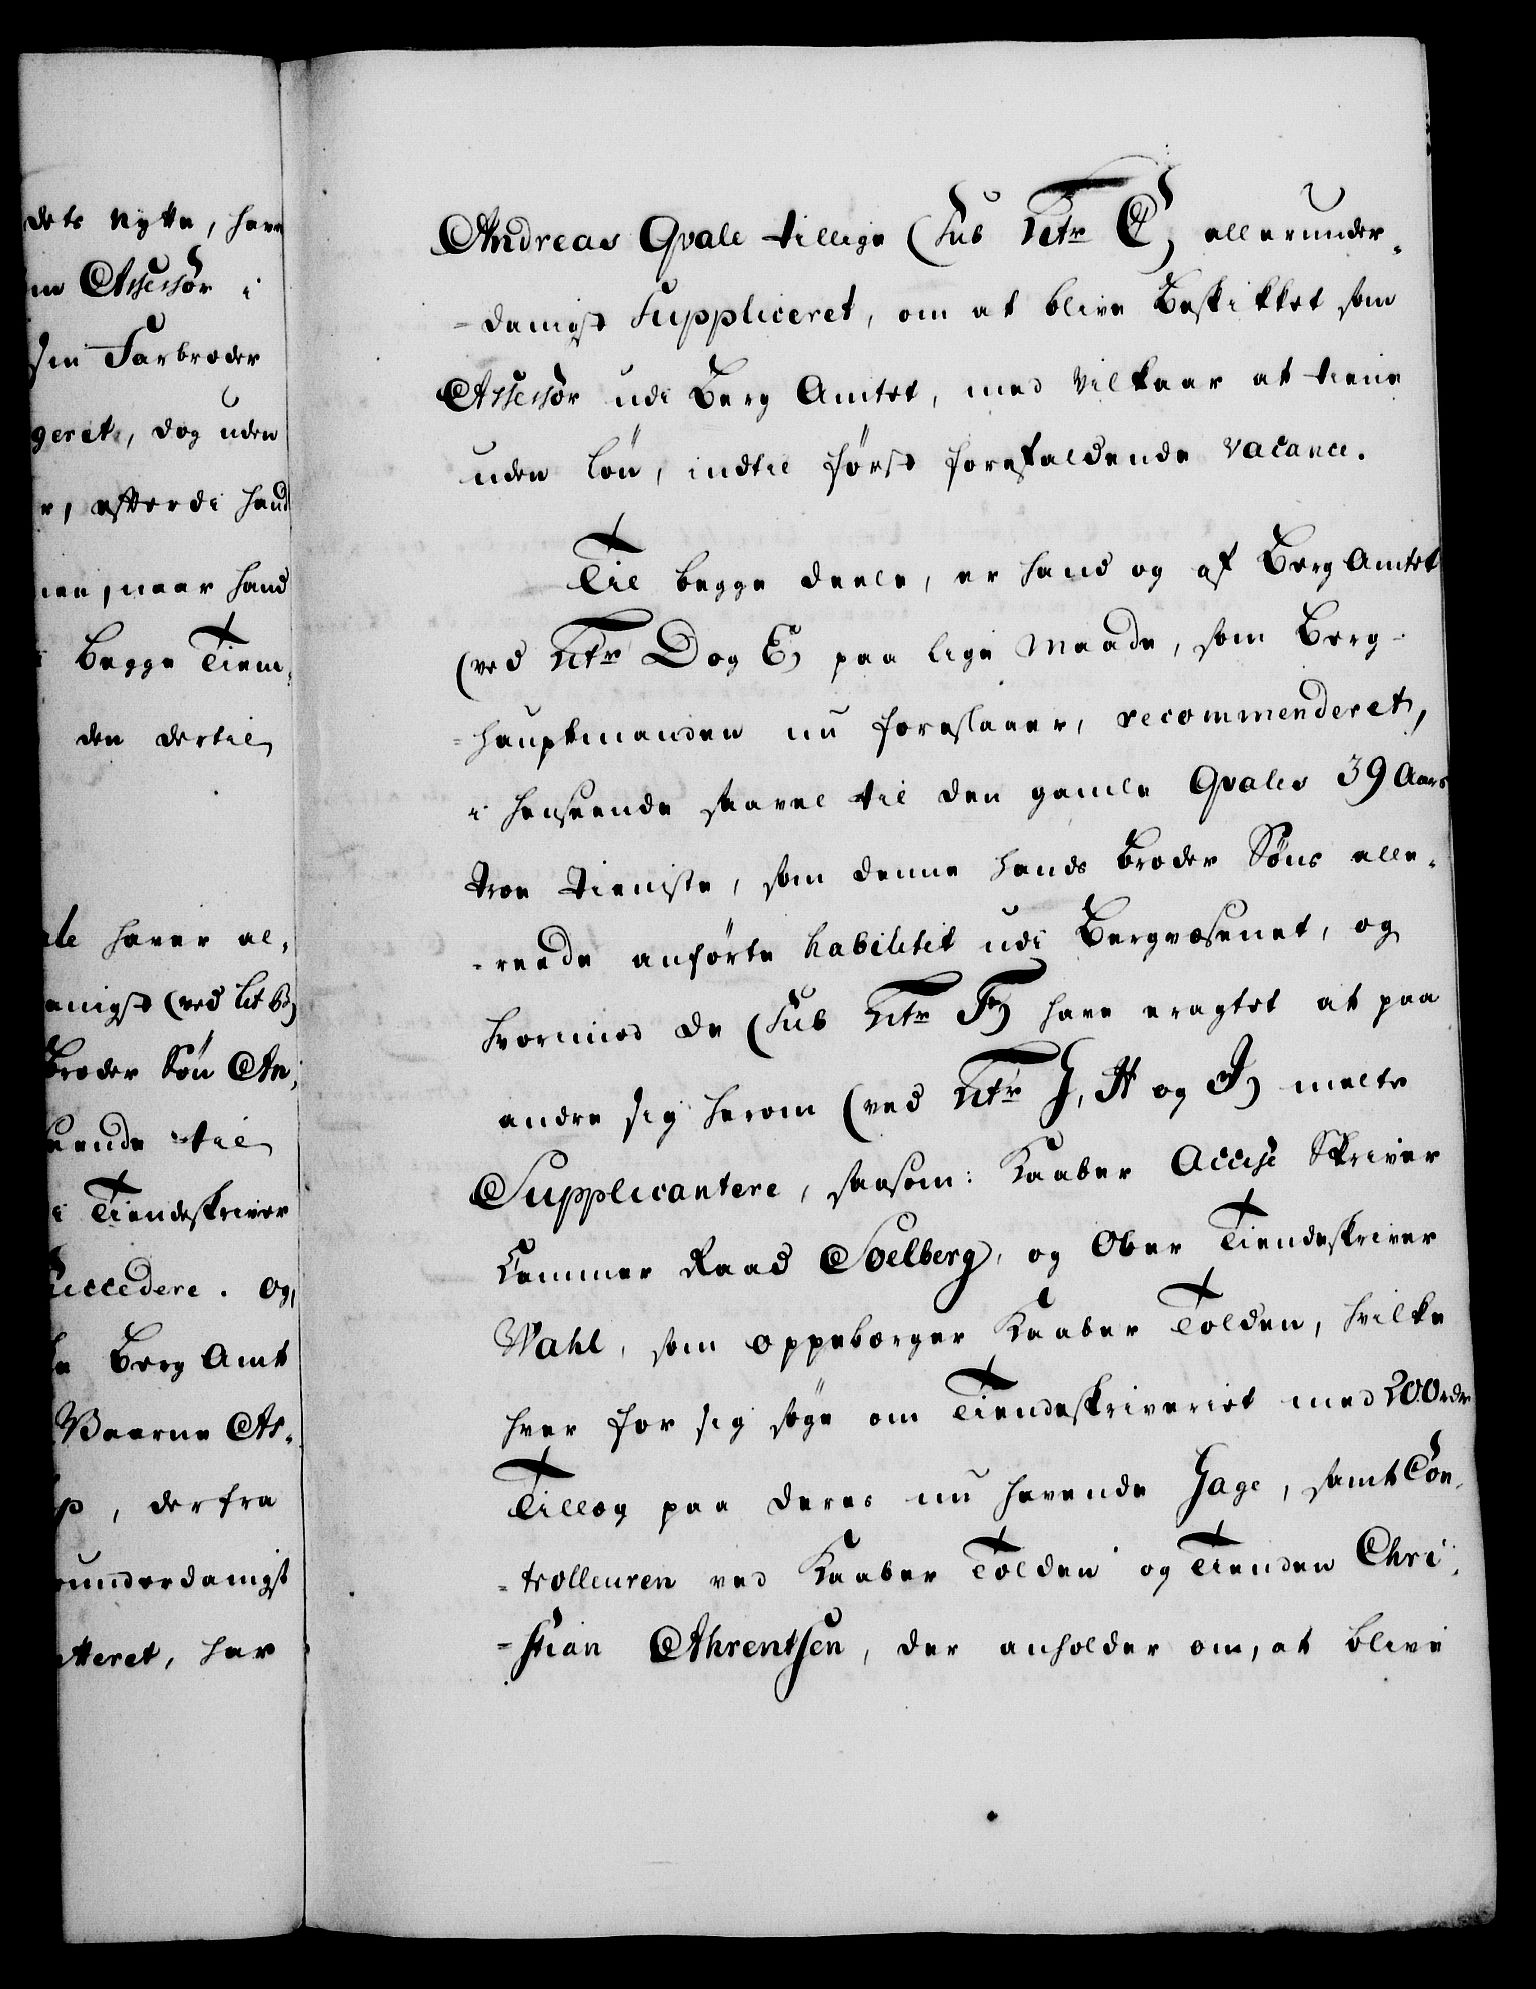 dets Nytte, have
Assessor i
sin Farbroder
geret, dog uden
r, efterdi hand
naar hand
Begge Tiem-
den dertil
haver al-
anigst (ved Lit B)
Broder Søn An-
eende til
i Tiendeskriver
Succedere. Og,
Berg Amt
As-
, derfra
erunderdanigst
tteret, har
Andreas Qvale tillige (Sub Litr C) allerunder-
-danigst Suppliceret, om at blive Beskikket som
Assessor udi Berg Amtet, med Vilkaar at tiene
uden løn, indtil først forefaldende vacance.
Til begge deele, er hand og af Berg Amtet
(ved Litr D og E) paa lige Maade, som Berg-
-hauptmanden nu foreslaaer, recommenderet,
i henseende saavel til den gamle Qvales 39 Aars
troe tieniste, som denne hands Broder Søns alle-
-reede anførte habilitet udi Bergvæsenet, og
hvorimod de (Sub Litr F) have eragtet at paa
andre sig herom (ved Litr G, H og I) meldte
Supplicantere, saasom: Kaaber Accise Skriver
Cammer Raad Soelberg, og Ober Tiendeskriver
Wahl, som oppebærger Kaaber Tolden, hvilke
hver for sig søge om Tiendeskriveriet med 200 rdr
Tillæg paa deres nu havende Gage, samt Con-
-trolleuren ved Kaaber Tolden og Tienden Chri-
-stian Ahrentsen, der anholder om, at blive